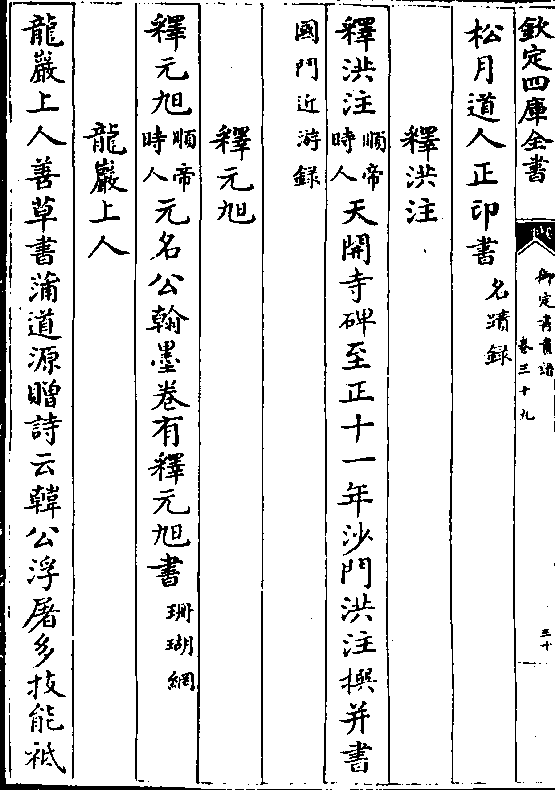 欽定四庫全書
御定書畫譜
卷三十九
三十
松月道人正印書名蹟錄
釋洪注
釋洪注順帝時人天開寺碑至正十一年沙門洪注撰并書
國門近游錄
釋元旭
釋元旭順帝時人元名公翰墨卷有釋元旭書珊瑚網
龍巖上人
龍巖上人善草書蒲道源贈詩云韓公浮屠多技能祗